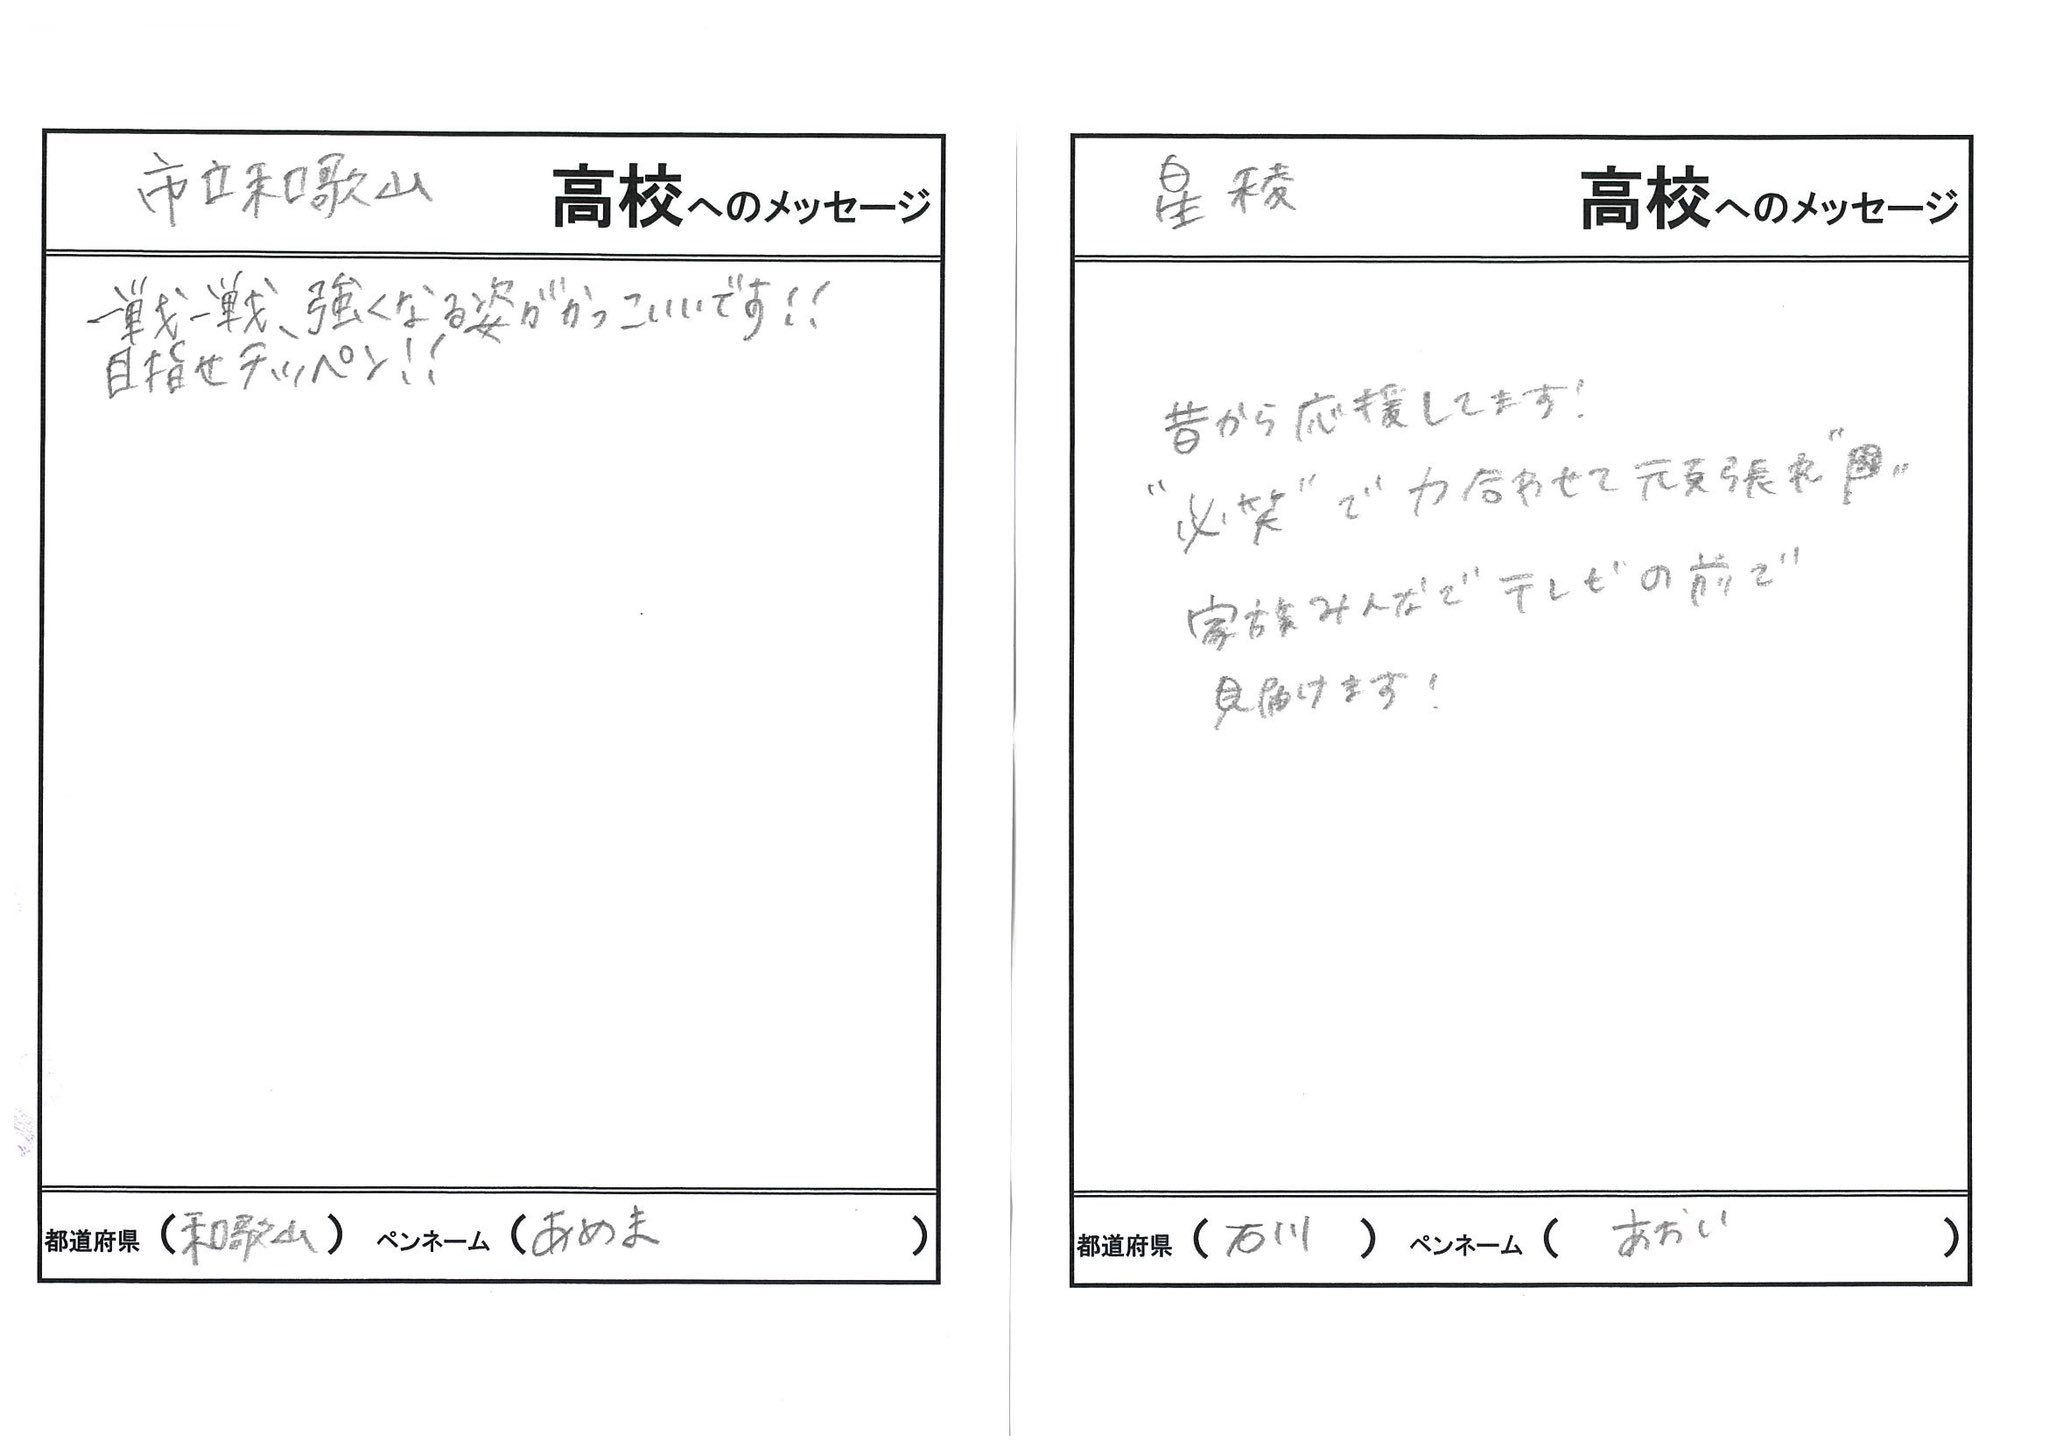 市立和歌山 高校へのメッセージ
一戦一戦、強くなる姿がかっこいいです!!
目指せテッペン!!
都道府県（和歌山） ペンネーム（あめま）
星稜 高校へのメッセージ
昔から応援してます!
"必笑"で力合わせて頑張れ
家族みんなでテレビの前で
見届けます!
都道府県（石川） ペンネーム（あおい）